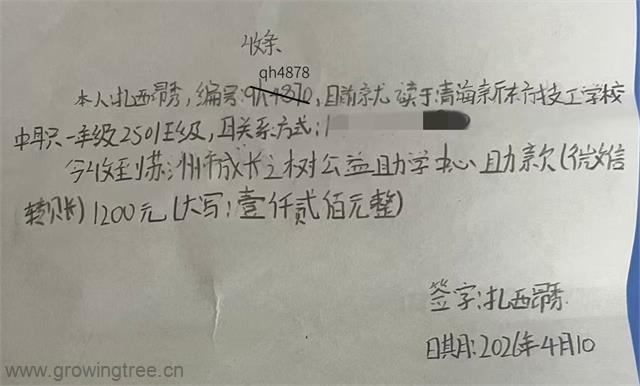 收条
qh4878
本人扎西昂秀,编号:qh4870,目前就读于青海新东方技工学校
中职一年级2501班级,联系方式:1
今收到苏州市成长之树公益助学中心助款(微信
转账)1200元(大写:壹仟贰佰元整)
签字:扎西昂秀
日期:2026年4月10
www.growingtree.cn